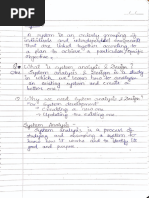 A system is an orderly grouping of
individuals and interdependent components
that are linked together according to
a plan to achieve a particular/specific
objective.
What is system analysis & Design?
System analysis & Design is a study
in which we learn how to analyze
an existing system and create a
better one.
Why we need system analysis & Design
for system development?
→ Creating new
→ Updating the existing
System Analysis -
System Analysis is a process of
studying and observing a system to
know how it works and to identify
its goal and purpose.